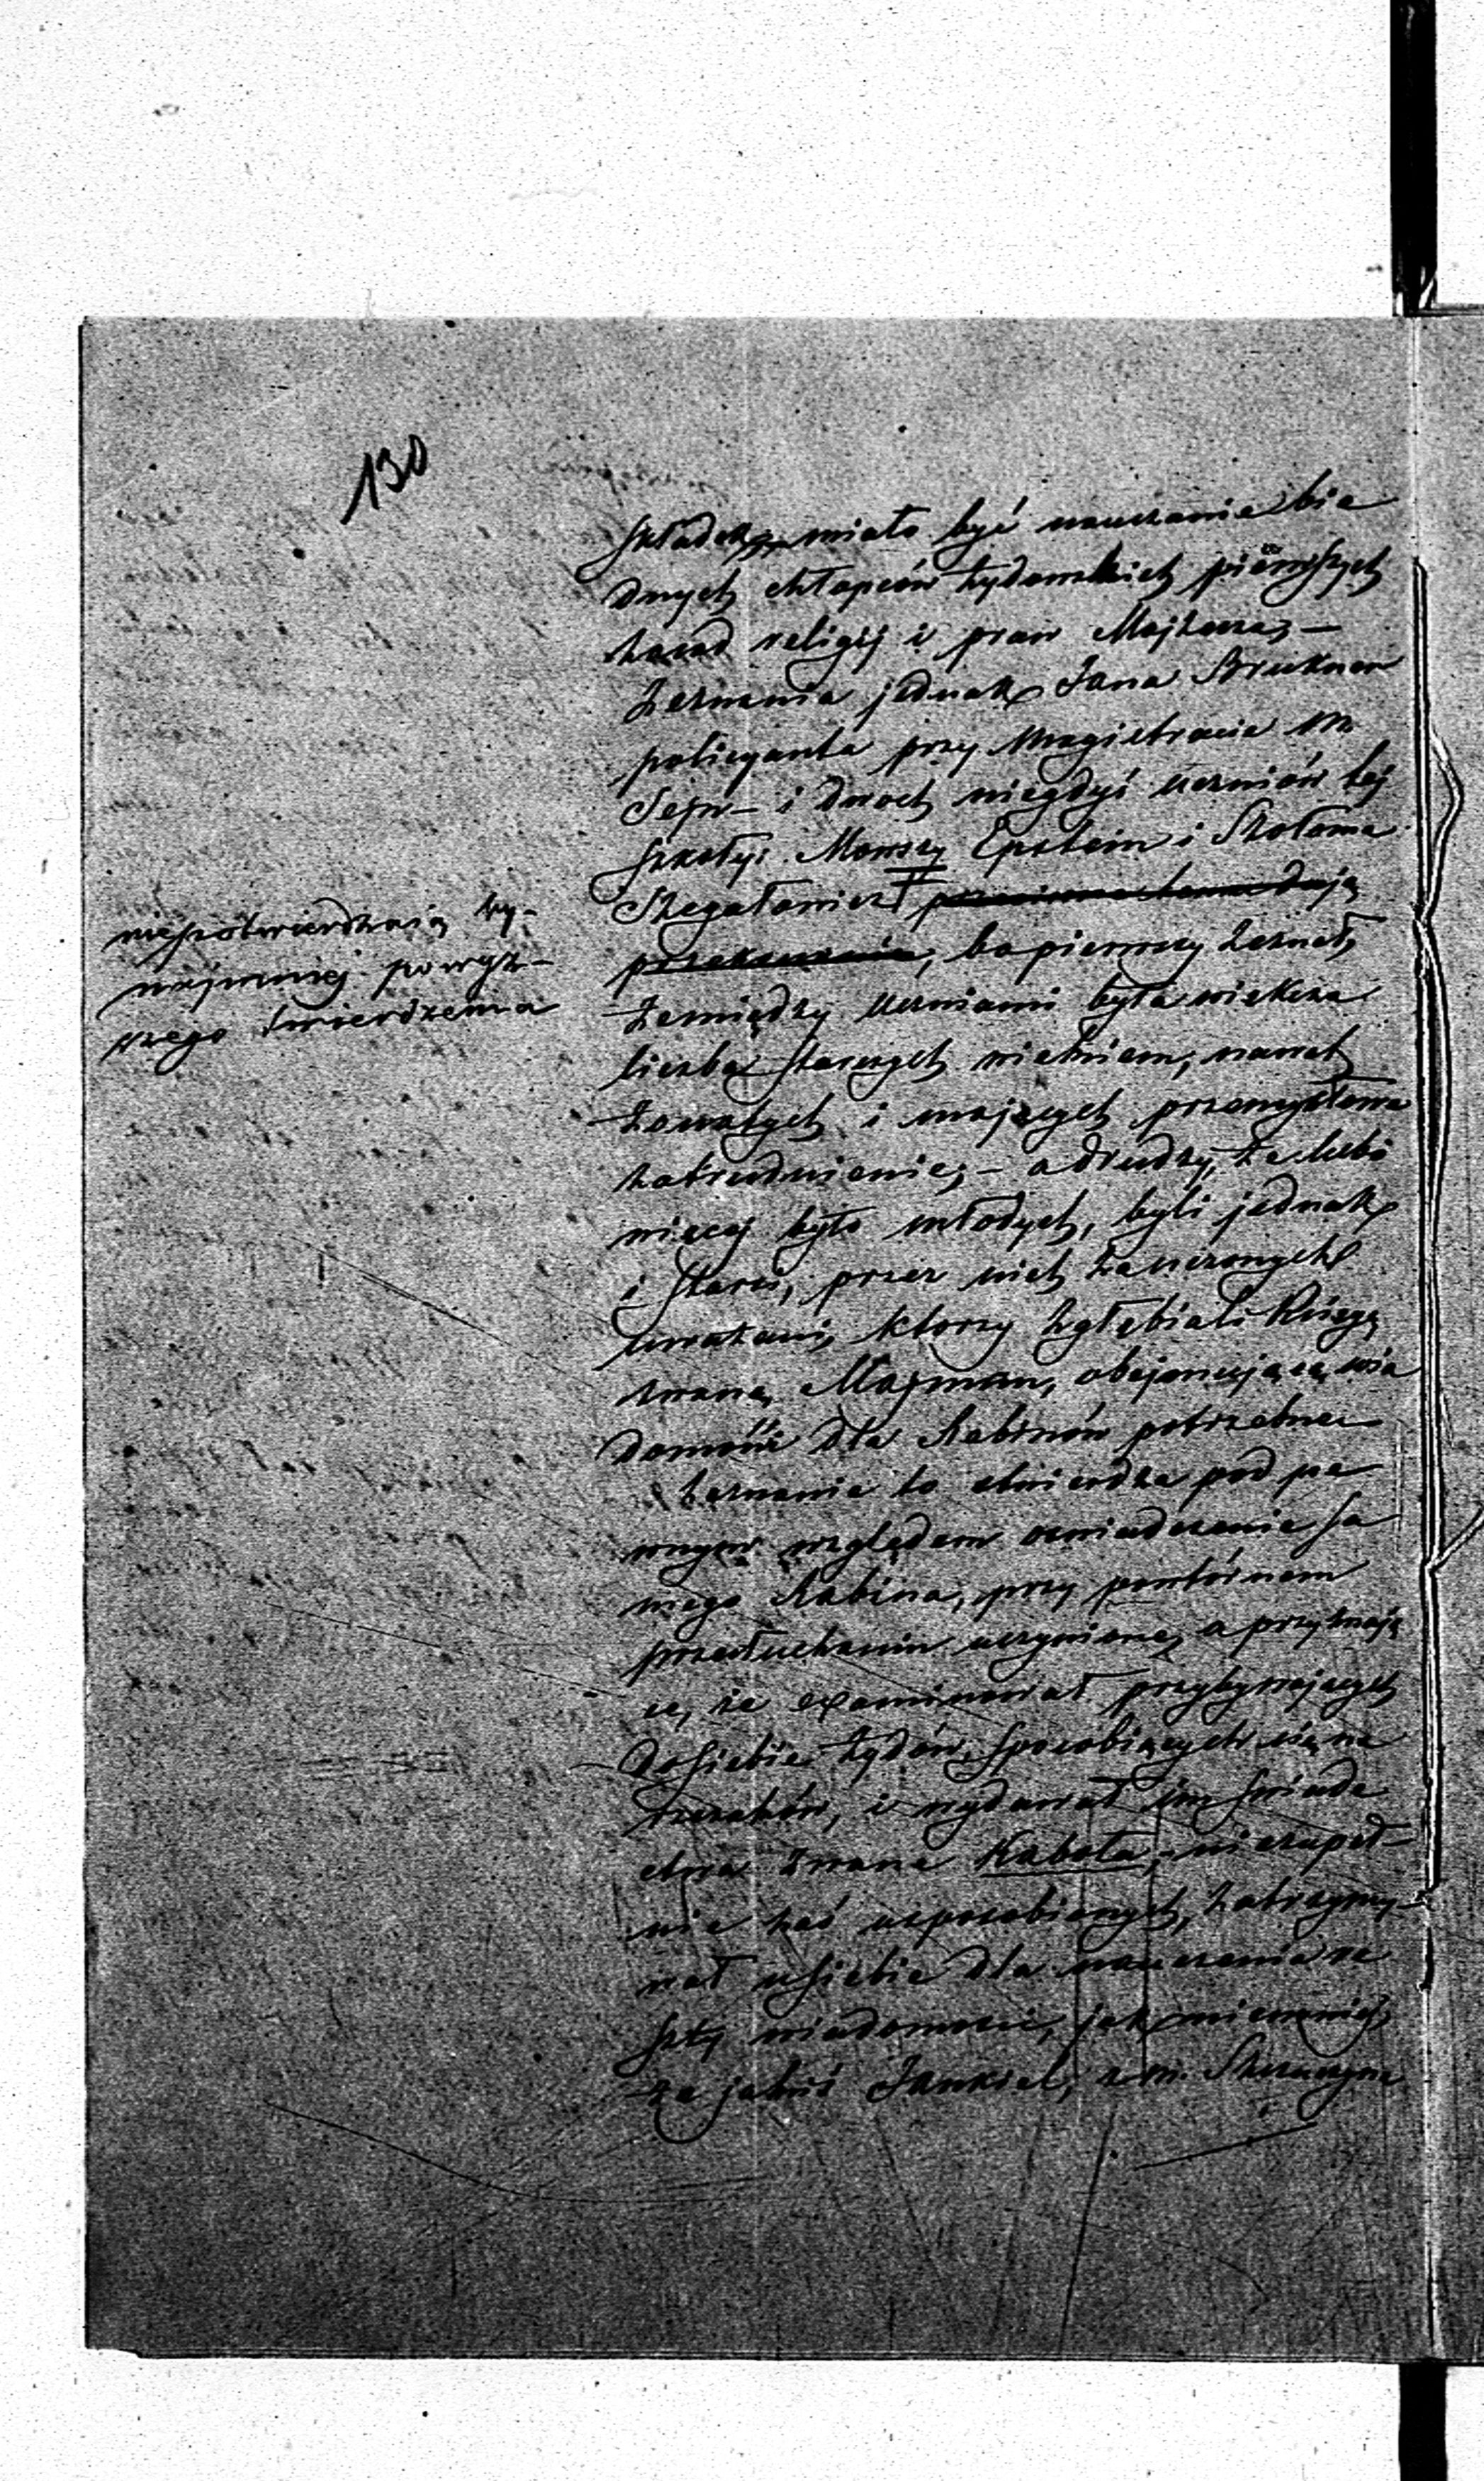 130
składek miało być nauczanie bie
dnych chłopców żydowskich pierwszych
zasad religij i praw Mojżesza, —
Zeznania jednak Jana Bruknera
policyanta przy Magistracie m.
Sejn — i dwoch niegdyś uczniów tej
szkoły: Mowszy Epstein i Szołoma
Szegałowicz dają
, bo pierwszy zeznał,
że między uczniami była większa
liczba starszych wiekiem, nawet
żonatych i mających przemysłowe
zatrudnienie; — a drudzy, że lubo
więcej było młodych, byli jednak
i starsi, przez nich za uczonych
uważani, ktorzy zgłębiali Księgę
zwaną obejmującą wia
domości dla Rabinów potrzebne
Zeznanie to stwierdza pod pe
wnym względem oswiadczenie sa
mego Rabina, przy powtórnem
przesłuchaniu uczynione, a przyznają
ce, że examinował przybywających
do siebie żydów, sposobiących się na
rzezaków, i wydawał im świade
ctwa zwane Kabała, niezupeł-
nie zaś usposobionych, zatrzymy-
wał u siebie dla nauczenia re
szty wiadomości, jak mianowicie
że jakiś Jankiel, z m. Szczuczyna
niepotwierdzaią by-
najmniej powyż-
szego twierdzenia